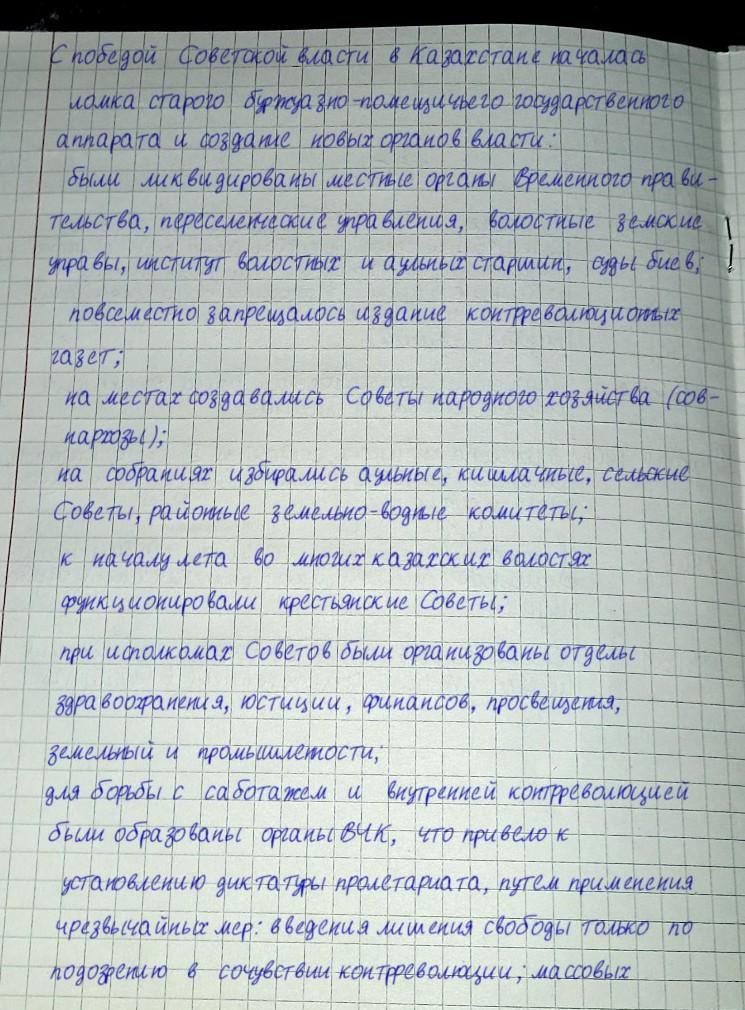 С победой Советской власти в Казахстане началась
ломка старого буржуазно-помещичьего государственного
аппарата и создание новых органов власти:
были ликвидированы местные органы Временного прави-
тельства, переселенческие управления, волостные земские
управы, институт волостных и аульных старшин, суды биев;
повсеместно запрещалось издание контрреволюционных
газет;
на местах создавались Советы народного хозяйства (сов-
нархозы);
на собраниях избирались аульные, кишлачные, сельские
Советы, районные земельно-водные комитеты;
к началу лета во многих казахских волостях
функционировали крестьянские Советы;
при исполкомах Советов были организованы отделы
здравоохранения, юстиции, финансов, просвещения,
земельный и промышленности;
для борьбы с саботажем и внутренней контрреволюцией
были образованы органы ВЧК, что привело к
установлению диктатуры пролетариата, путем применения
чрезвычайных мер: введения лишения свободы только по
подозрению в сочувствии контрреволюции; массовых